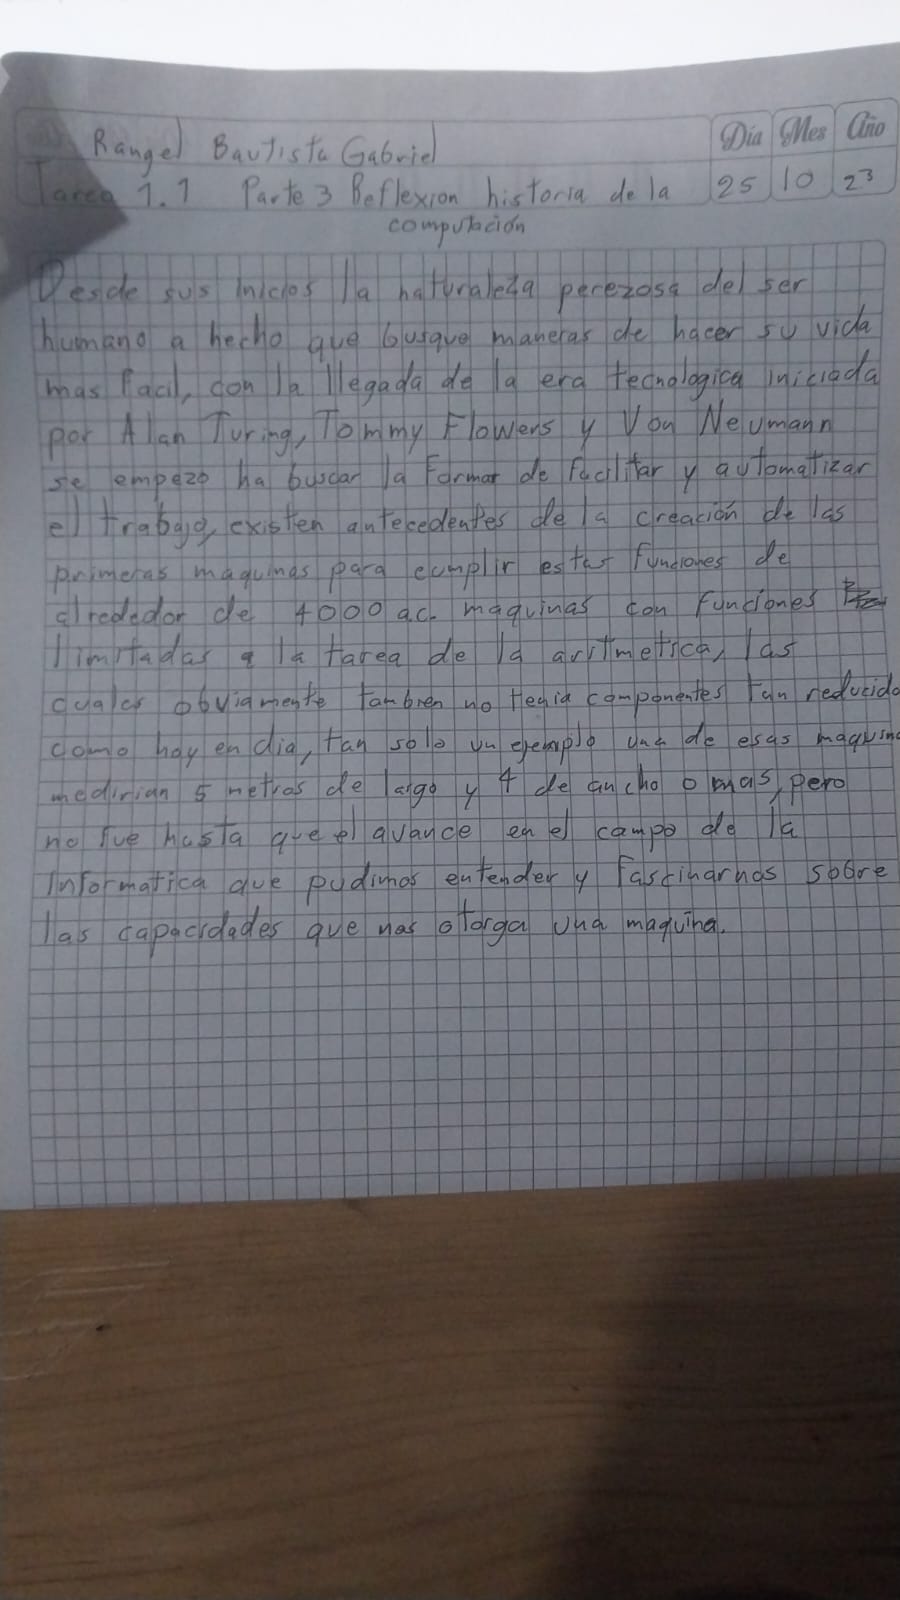 Rangel Bautista Gabriel
Día Mes Año
Tarea 1.1 Parte 3 Reflexion historia de la
25 10 23
computación
Desde sus inicios la naturaleza perezosa del ser
humano a hecho que busque maneras de hacer su vida
mas facil, con la llegada de la era tecnologica iniciada
por Alan Turing, Tommy Flowers y Von Neumann
se empezo ha buscar la formar de facilitar y automatizar
el trabajo, existen antecedentes de la creación de las
primeras maquinas para cumplir estas funciones de
alrededor de 4000 a.c. maquinas con funciones
limitadas a la tarea de la aritmetica, las
cuales obviamente tambien no tenia componentes tan reducido
como hoy en dia, tan solo un ejemplo una de esas maquina
medirian 5 metros de largo y 4 de ancho o mas, pero
no fue hasta que el avance en el campo de la
informatica que pudimos entender y fascinarnos sobre
las capacidades que nos otorga una maquina.